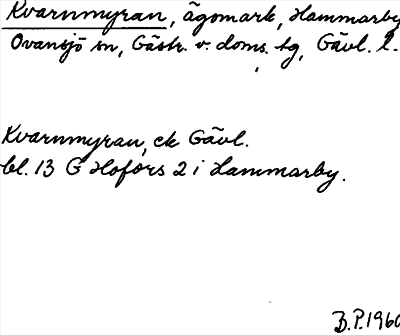 Kvarnmyran, ägomark, Hammarby
Ovansjö sn, Gästr. v. doms. tg, Gävl. l.
Kvarnmyran, ek Gävl.
bl. 13 G Hofors 2 i Hammarby.
B.P. 1960